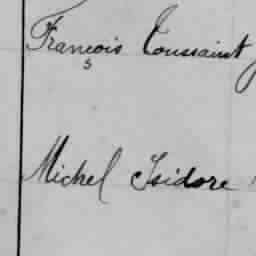 François Toussaint
Michel Isidore